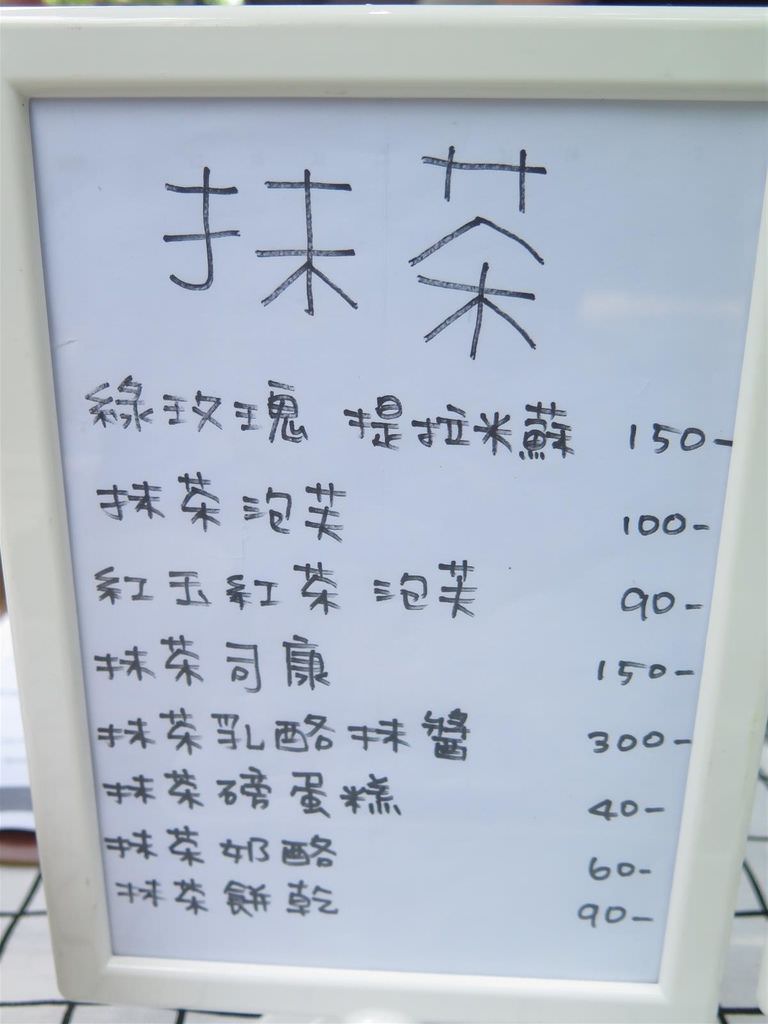 抹茶
綠玫瑰 提拉米蘇 150-
抹茶泡芙 100-
紅玉紅茶 泡芙 90-
抹茶司康 150-
抹茶乳酪抹醬 300-
抹茶磅蛋糕 40-
抹茶奶酪 60-
抹茶餅乾 90-